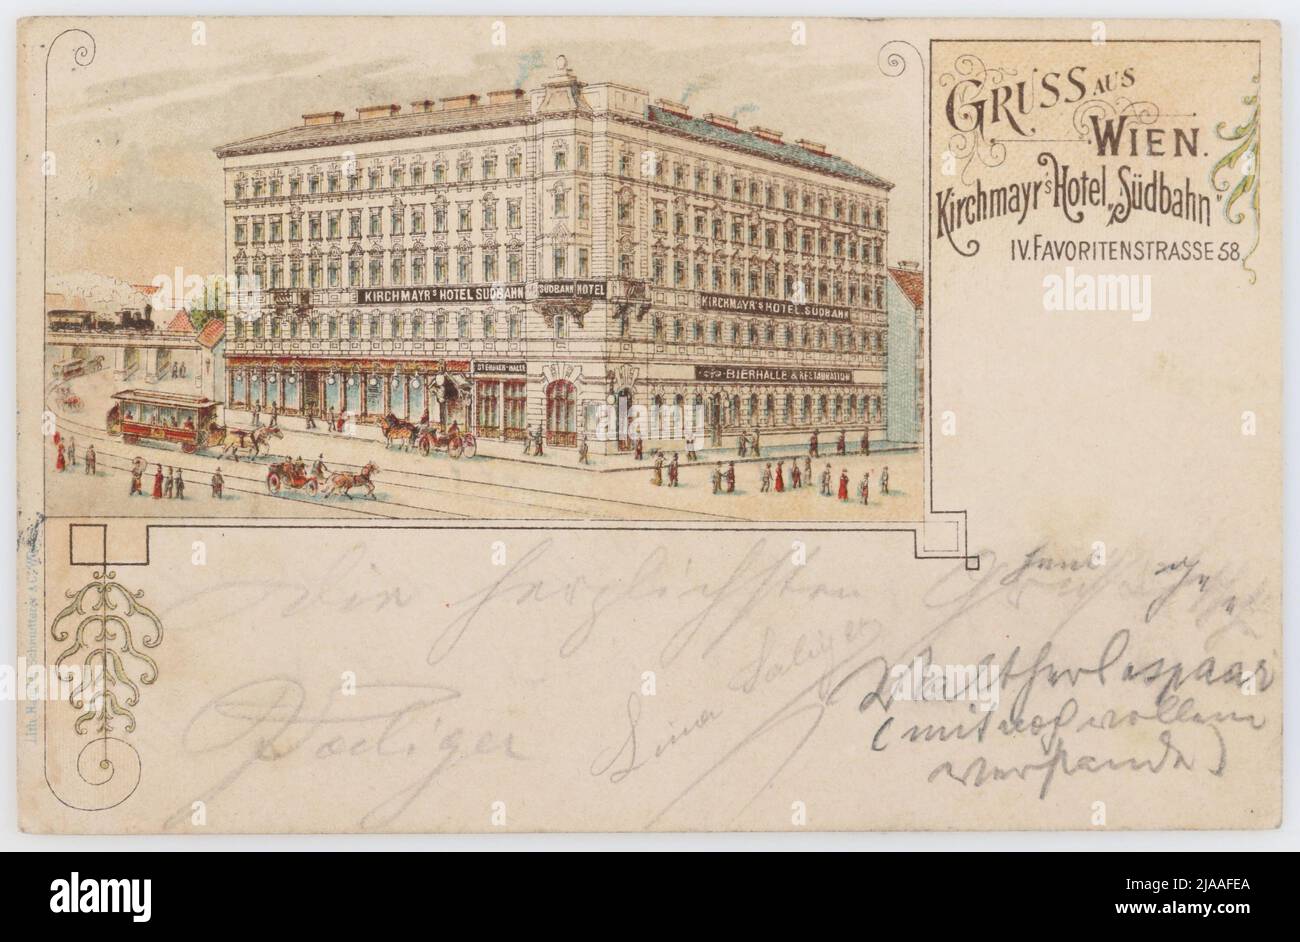 GRUSS AUS
WIEN.
Kirchmayr's Hotel „Südbahn"
IV. FAVORITENSTRASSE 58.
KIRCHMAYR'S HOTEL SÜDBAHN
SÜDBAHN HOTEL
KIRCHMAYR'S HOTEL SÜDBAHN
BIERHALLE & RESTAURATION
Die herzlichsten
Saliger
Lina
(mit noch vollem
Verstande)
alamy
Image ID: 2JAAFEA
www.alamy.com